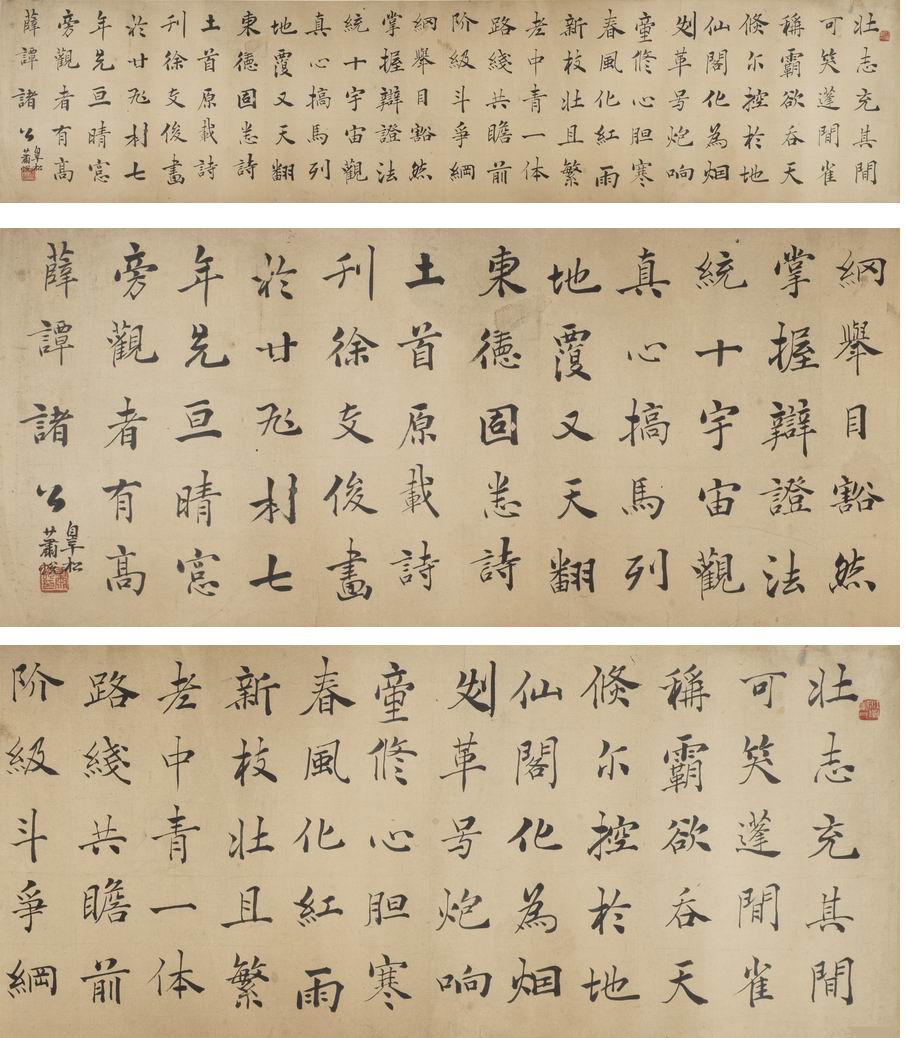 壮志充其間
可笑蓬間雀
稱霸欲吞天
倏尔控於地
仙閣化為烟
革号炮响
童修心胆寒
春風化紅雨
新枝壮且繁
老中青一体
路綫共瞻前
阶級斗爭綱
綱舉目豁然
掌握辯證法
統十宇宙觀
真心搞馬列
地覆又天翻
東德固詩
土首原載詩
刊徐支後畫
於廿村七
年先亘晴窓
旁觀者有高
薛譚諸公
皋松
蕭
綱舉目豁然
掌握辯證法
統十宇宙觀
真心搞馬列
地覆又天翻
東德固詩
土首原載詩
刊徐支後畫
於廿村七
年先亘晴窓
旁觀者有高
薛譚諸公
皋松
蕭
壮志充其間
可笑蓬間雀
稱霸欲吞天
倏尔控於地
仙閣化為烟
革号炮响
童修心胆寒
春風化紅雨
新枝壮且繁
老中青一体
路綫共瞻前
阶級斗爭綱